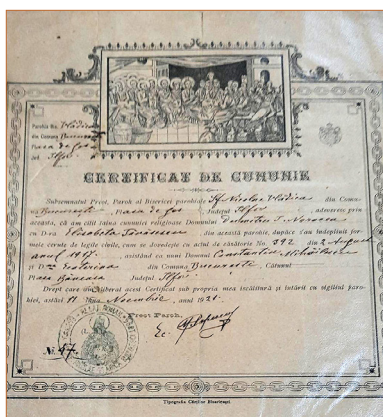 Parohia No. Vlădica
din Comuna București
Plasa de Jos
Jud. Ilfov
CERTIFICAT DE CUNUNIE
Subsemnatul Preot, Paroh al Bisericei parohiale Sf. Nicolae Vlădica din Comu-
na București, Plasa de Jos, Județul Ilfov, adeveresc prin
aceasta, că am dat taina cununiei religioase Domnului Dumitru I.
cu D-ra Elisabeta, din această parohie, după ce s'au îndeplinit for-
mele cerute de legile civile, cum se dovedește cu actul de căsătorie No. 392 din 2 August
anul 1917, asistând ca nuni Domnul Constantin Mihăilescu
și D-na Ecaterina din Comuna București, Cătunul
Plasa Județul Ilfov.
Drept care am liberat acest Certificat sub propria mea iscălitură și întărit cu sigiliul paro-
hiei, astăzi 11 luna Noembrie, anul 1921.
Preot Paroh,
Ec.
No. 47
Tipografia Cărților Bisericești